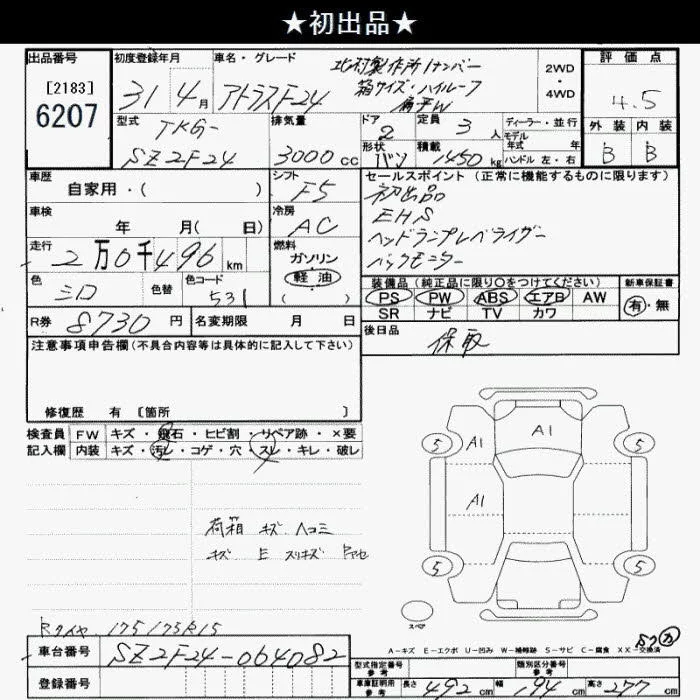 ★初出品★
出品番号
[2183]
6207
初度登録年月
31 4月
車名・グレード
アトラスF24
北村製作所1ナンバー
箱サイズ・ハイルーフ
2WD・4WD
評価点
4.5
外装 内装
B B
型式
TKG-
SZ2F24
排気量
3000cc
ドア
2
定員
3人
形状
バン
積載
1450kg
ディーラー・並行
モデル年式 年
ハンドル 左・右
車歴
自家用・( )
シフト
F5
セールスポイント (正常に機能するものに限ります)
初出品
EHS
ヘッドランプレベライザー
バックモニター
車検
年 月( 日)
冷房
AC
走行
2万0千496km
燃料
ガソリン
軽油
( )
色
シロ
色替
色コード
531
装備品 (純正品に限り○をつけてください)
PS PW ABS エアB AW
SR ナビ TV カワ
新車保証書
有・無
R券 8730円
名変期限 月 日
後日品
保取
注意事項申告欄(不具合内容等は具体的に記入して下さい)
修復歴 有 [箇所 ]
検査員記入欄
FW キズ・飛石・ヒビ割・リペア跡・×要
内装 キズ・汚レ・コゲ・穴・スレ・キレ・破レ
荷箱 キズ ヘコミ
キズ E スリキズ ドアセ
A1 A1
A1
5 5
5 5
スペア
Rタイヤ 175/75R15
A-キズ E-エクボ U-凹み W-補修跡 S-サビ C-腐食 XX-交換済
車台番号 SZ2F24-064082
登録番号
型式指定番号 参考
類別区分番号 参考
車庫証明用 参考
長さ 492cm 幅 194cm 高さ 277cm